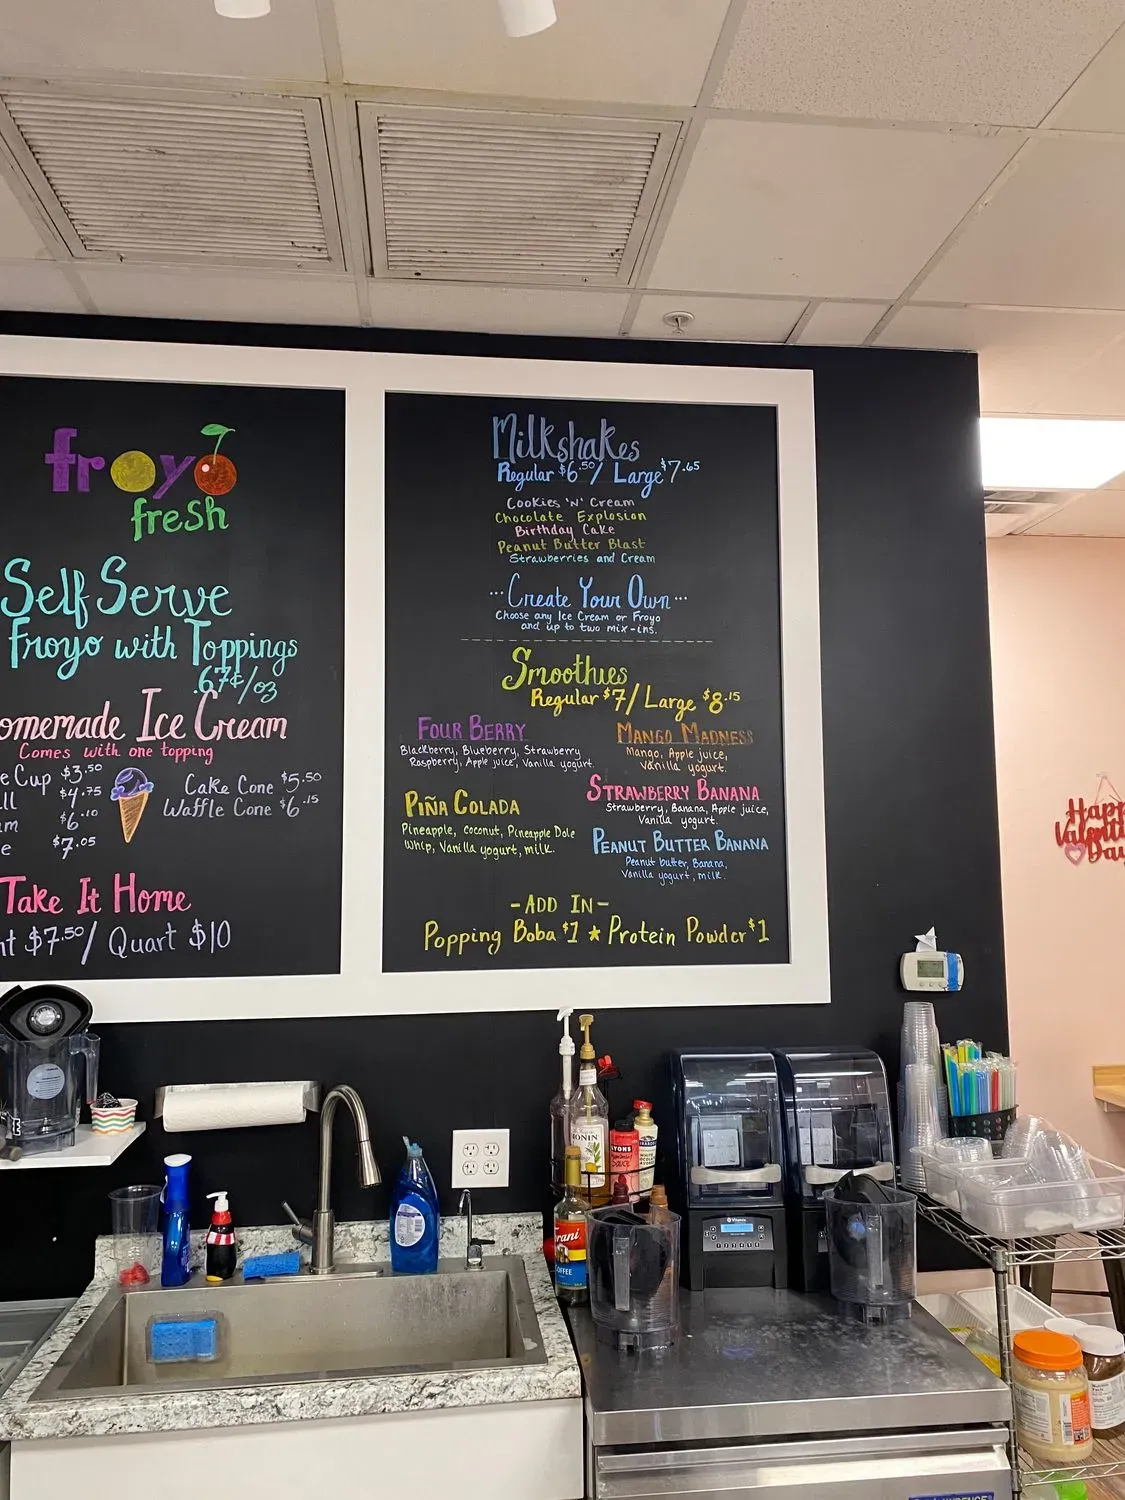 froyo
fresh
Self Serve
Froyo with Toppings
.67¢/oz
Ice Cream
Comes with one topping
Cup $3.50
$4.75
$6.10
$7.05
Cake Cone $5.50
Waffle Cone $6.15
Take It Home
$7.50/ Quart $10
Milkshakes
Regular $6.50/ Large $7.65
Cookies 'N' Cream
Chocolate Explosion
Birthday Cake
Peanut Butter Blast
Strawberries and Cream
... Create Your Own ...
Choose any Ice Cream or Froyo
and up to two mix-ins.
Smoothies
Regular $7/ Large $8.15
Four Berry
Blackberry, Blueberry, Strawberry
Raspberry, Apple juice, Vanilla yogurt.
Mango Madness
Mango, Apple juice,
Vanilla yogurt.
Piña Colada
Pineapple, coconut, Pineapple Dole
Whip, Vanilla yogurt, milk.
Strawberry Banana
Strawberry, Banana, Apple juice,
Vanilla yogurt.
Peanut Butter Banana
Peanut butter, Banana,
Vanilla yogurt, milk.
-ADD IN-
Popping Boba $1 ★ Protein Powder $1
Happy
Valentine
Day